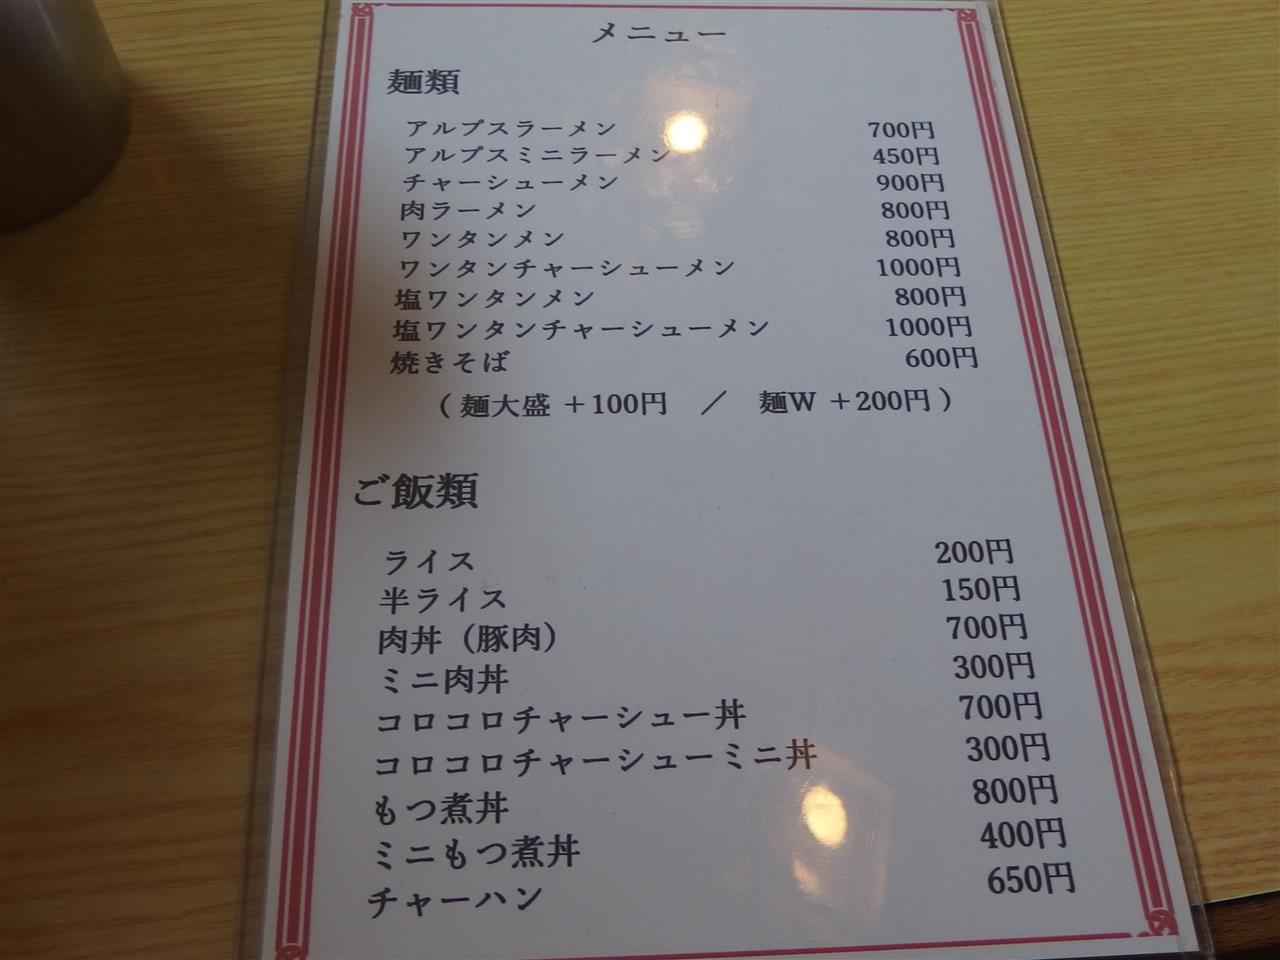 メニュー
麺類
アルプスラーメン 700円
アルプスミニラーメン 450円
チャーシューメン 900円
肉ラーメン 800円
ワンタンメン 800円
ワンタンチャーシューメン 1000円
塩ワンタンメン 800円
塩ワンタンチャーシューメン 1000円
焼きそば 600円
（麺大盛 ＋100円 ／ 麺W ＋200円）
ご飯類
ライス 200円
半ライス 150円
肉丼（豚肉） 700円
ミニ肉丼 300円
コロコロチャーシュー丼 700円
コロコロチャーシューミニ丼 300円
もつ煮丼 800円
ミニもつ煮丼 400円
チャーハン 650円